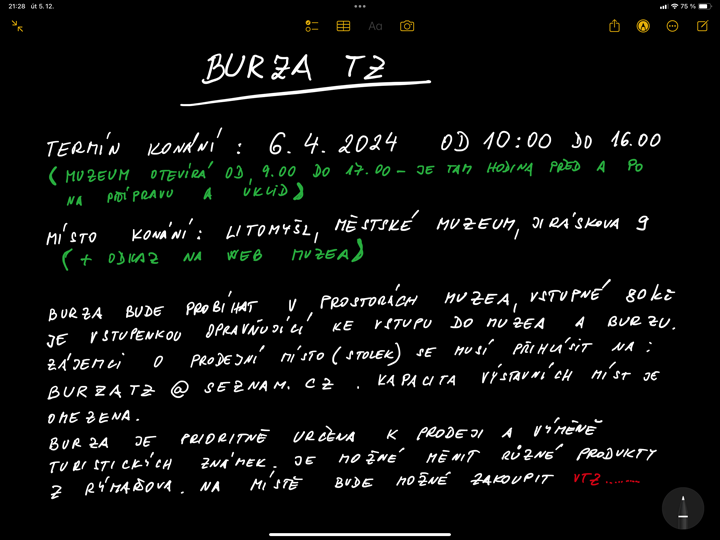 21:28 út 5. 12.
75 %
Aa
BURZA TZ
TERMÍN KONÁNÍ : 6.4.2024 OD 10:00 DO 16.00
(MUZEUM OTEVÍRÁ OD 9.00 DO 17.00 – JE TAM HODINA PŘED A PO
NA PŘÍPRAVU A ÚKLID)
MÍSTO KONÁNÍ: LITOMYŠL, MĚSTSKÉ MUZEUM, JIRÁSKOVA 9
(+ ODKAZ NA WEB MUZEA)
BURZA BUDE PROBÍHAT V PROSTORÁCH MUZEA, VSTUPNÉ 80 KČ
JE VSTUPENKOU OPRAVŇUJÍCÍ KE VSTUPU DO MUZEA A BURZU.
ZÁJEMCI O PRODEJNÍ MÍSTO (STOLEK) SE MUSÍ PŘIHLÁSIT NA :
BURZATZ @ SEZNAM.CZ . KAPACITA VÝSTAVNÍCH MÍST JE
OMEZENA.
BURZA JE PRIORITNĚ URČENA K PRODEJI A VÝMĚNĚ
TURISTICKÝCH ZNÁMEK. JE MOŽNÉ MĚNIT RŮZNÉ PRODUKTY
Z RÝMAŘOVA. NA MÍSTĚ BUDE MOŽNÉ ZAKOUPIT VTZ........